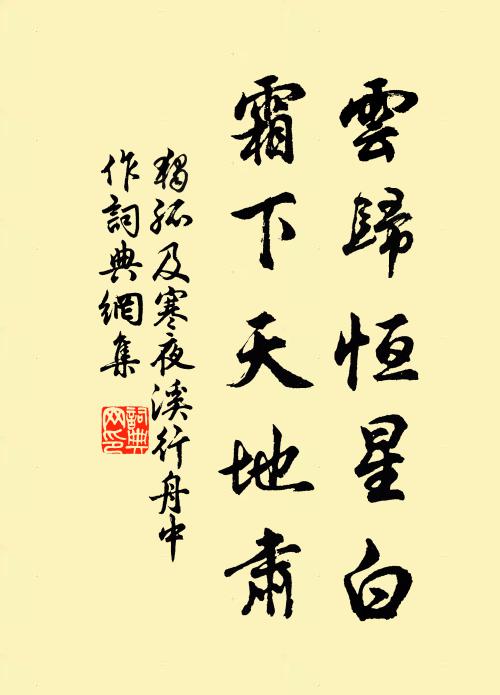 雲歸恒星白
霜下天地肅
獨孤及寒夜溪行舟中
作詞典網集
詞典
网印